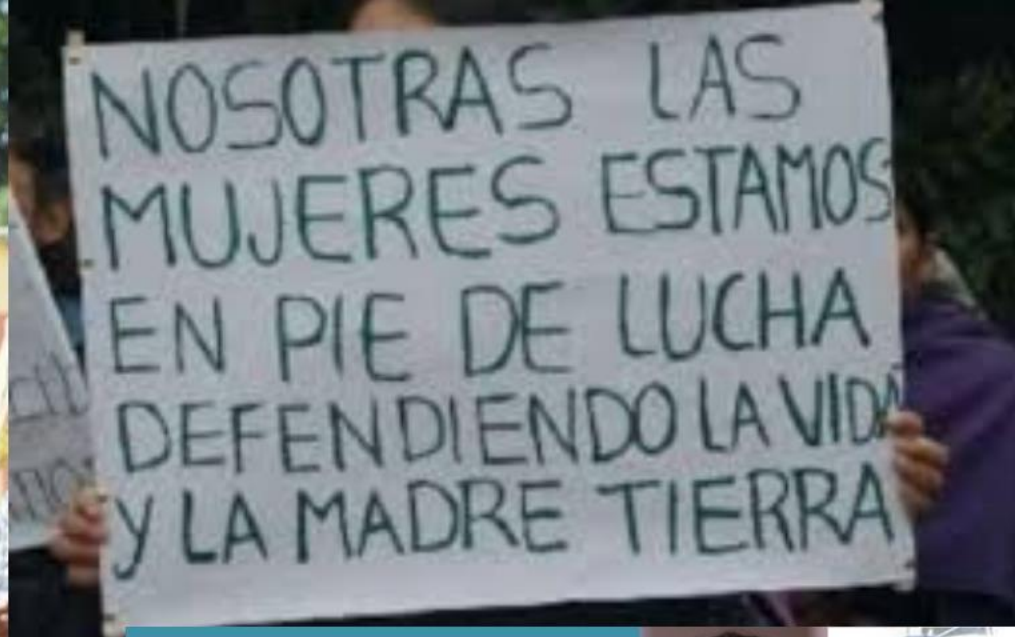 NOSOTRAS LAS
MUJERES ESTAMOS
EN PIE DE LUCHA
DEFENDIENDO LA VIDA
Y LA MADRE TIERRA